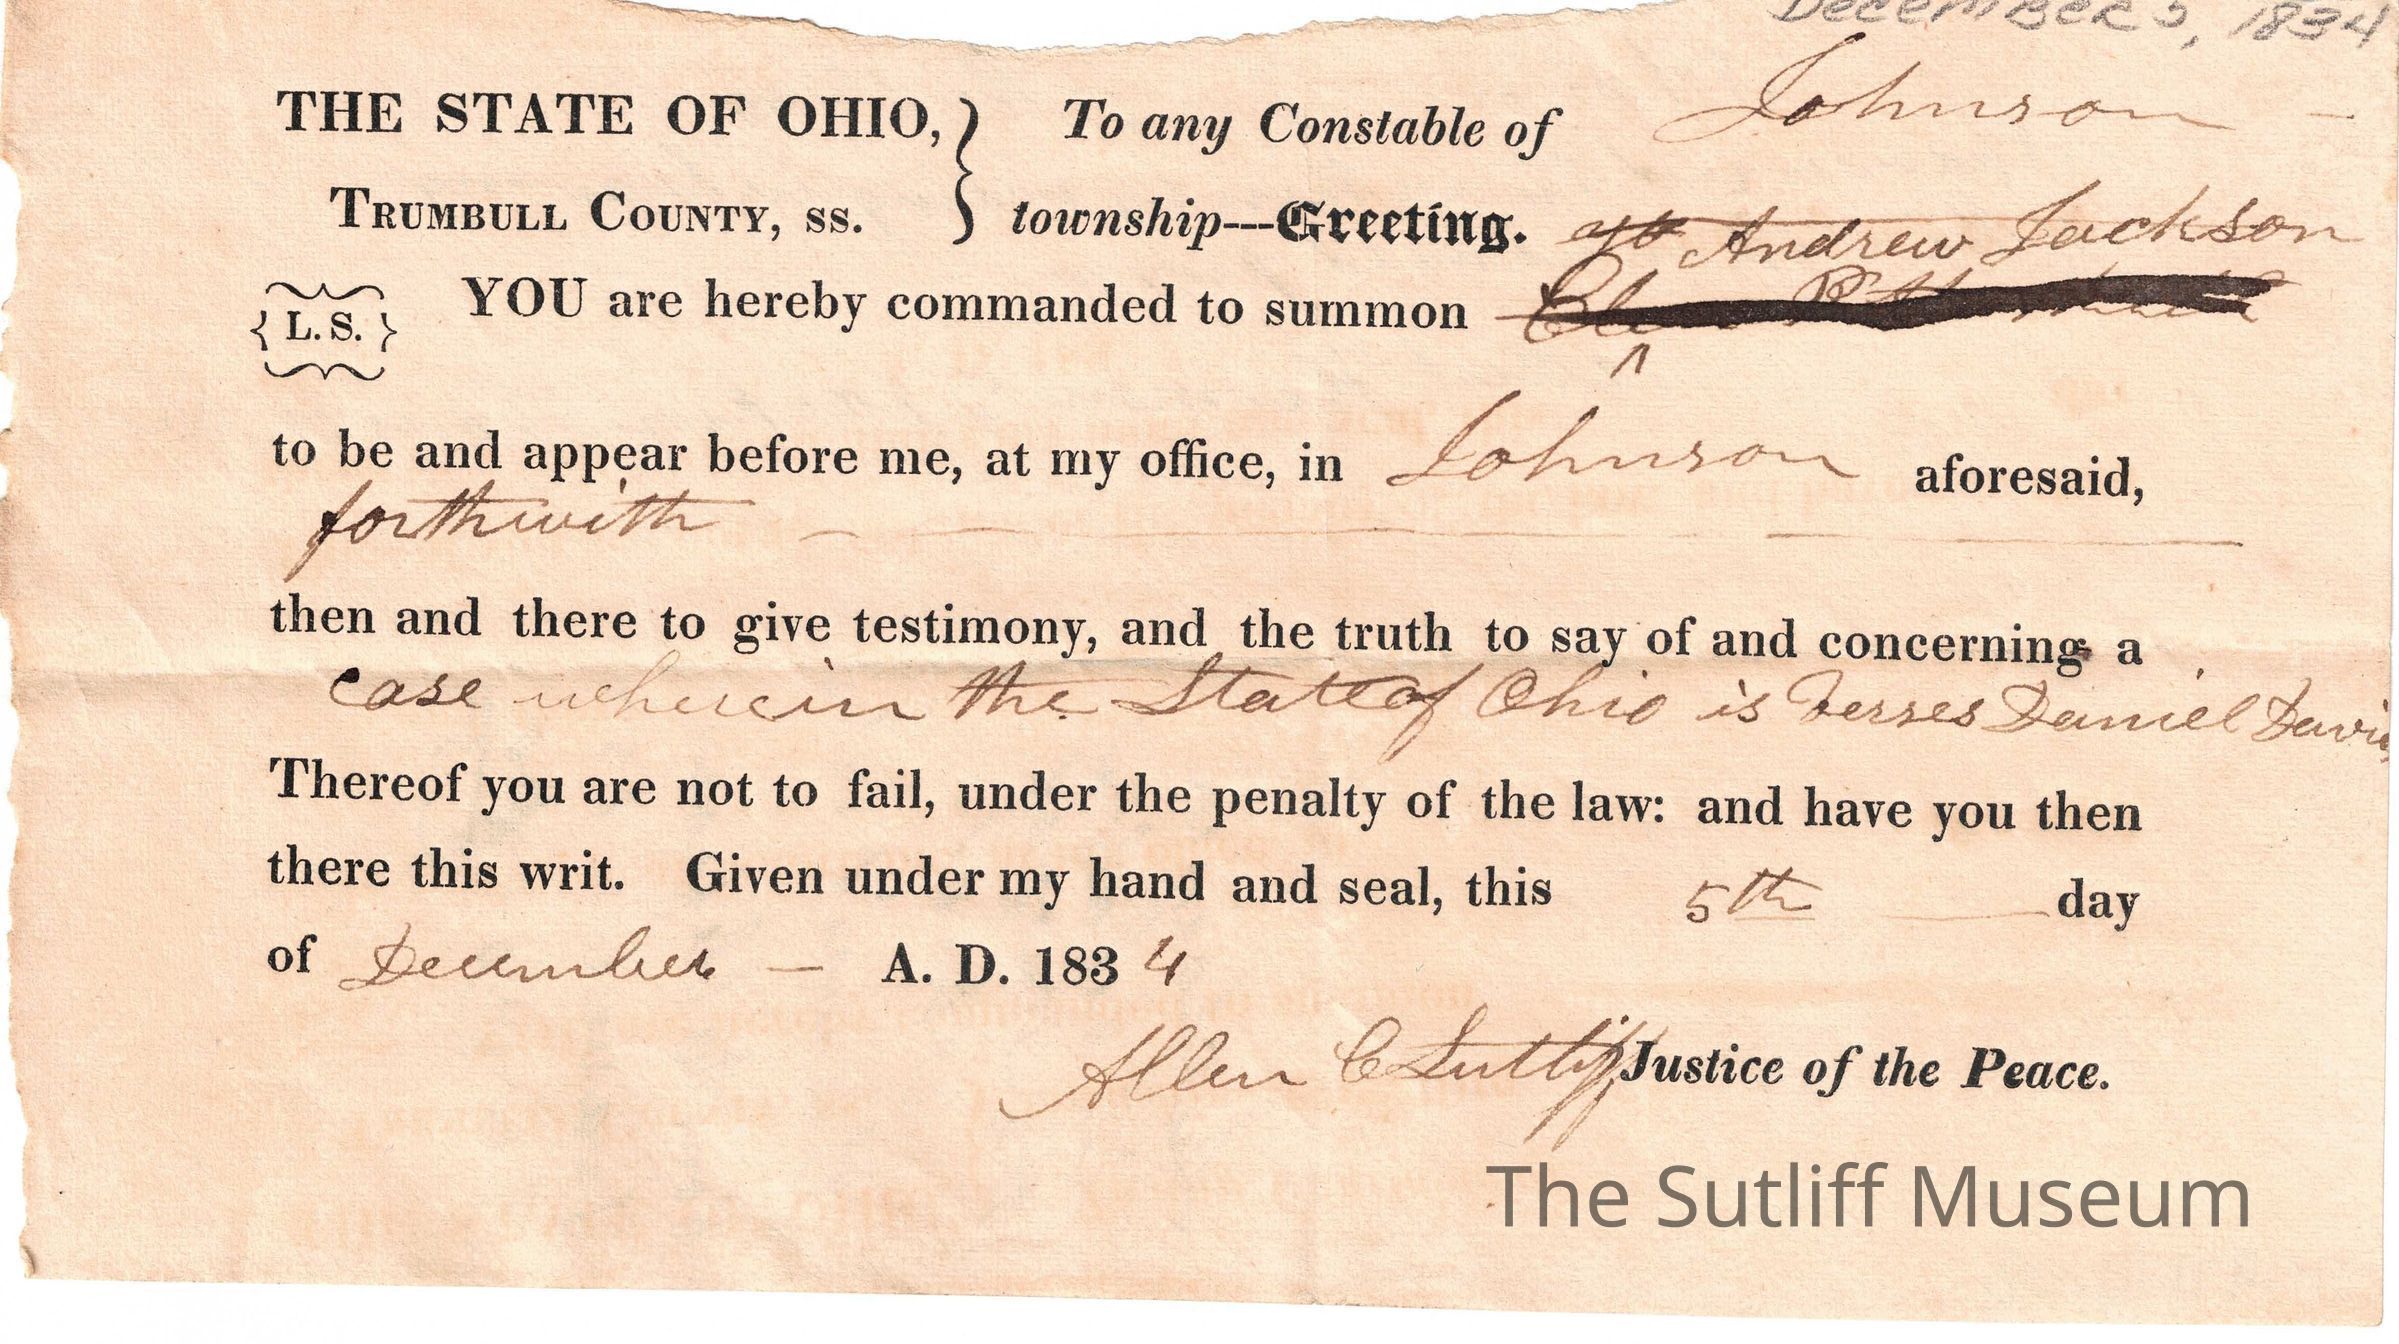 December 5, 1834
THE STATE OF OHIO, } To any Constable of Johnson
TRUMBULL COUNTY, ss. township---Greeting.
Andrew Jackson
{L. S.} YOU are hereby commanded to summon
^
to be and appear before me, at my office, in Johnson aforesaid,
forthwith
then and there to give testimony, and the truth to say of and concerning a
case wherein the State of Ohio is Verses Daniel Davis
Thereof you are not to fail, under the penalty of the law: and have you then
there this writ. Given under my hand and seal, this 5th day
of December — A. D. 1834
Allen C Sutliff Justice of the Peace.
The Sutliff Museum